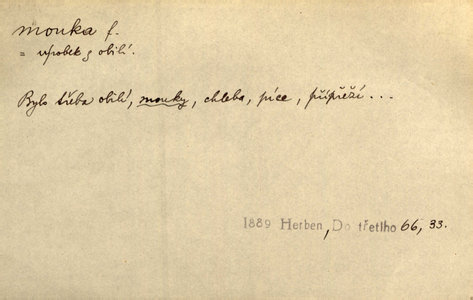 mouka f.
= výrobek z obilí.
Bylo třeba obilí, mouky, chleba, píce, přípřeží...
1889 Herben, Do třetího 66, 33.